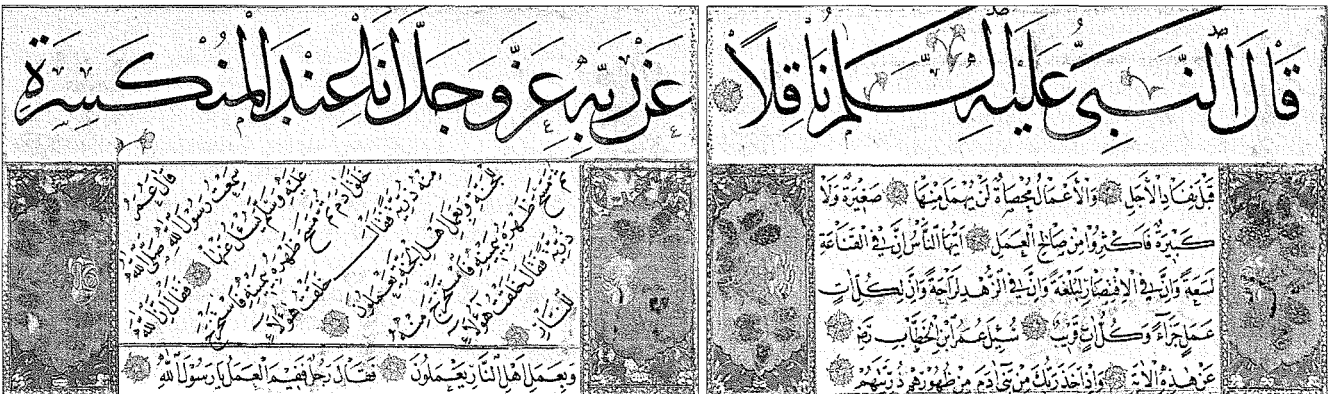 قَالَ النَّبِىُّ عَلَيْهِ السَّلَمُ نَاقِلًا
قبل نفاد الاجل والاعمال محصاة لن يهمل منها صغيرة ولا
كبيرة فاكثروا من صالح العمل ايها الناس ان في القناعة
لسعة وان في الاقتصار لبلغة وان في الزهد لراحة وان لكل
عمل جزاء وكل ات قريب سئل عمر ابن الخطاب رض
عن هذه الاية واذ اخذ ربك من بني ادم من ظهورهم ذريتهم
عَنْ رَبِّهِ عَزَّ وَجَلَّ اَنَا عِنْدَ الْمُنْكَسِرَةِ
قال عمر
سمعت رسول الله صلى الله
عليه وسلم يسئل عنها فقال ان الله
خلق ادم ثم مسح ظهره بيمينه فاستخرج
منه ذرية فقال خلقت هؤلاء
للجنة وبعمل اهل الجنة يعملون
ثم مسح ظهره بيمينه فاستخرج منه
ذرية فقال خلقت هؤلاء
للنار
وبعمل اهل النار يعملون فقال رجل ففيم العمل يا رسول الله